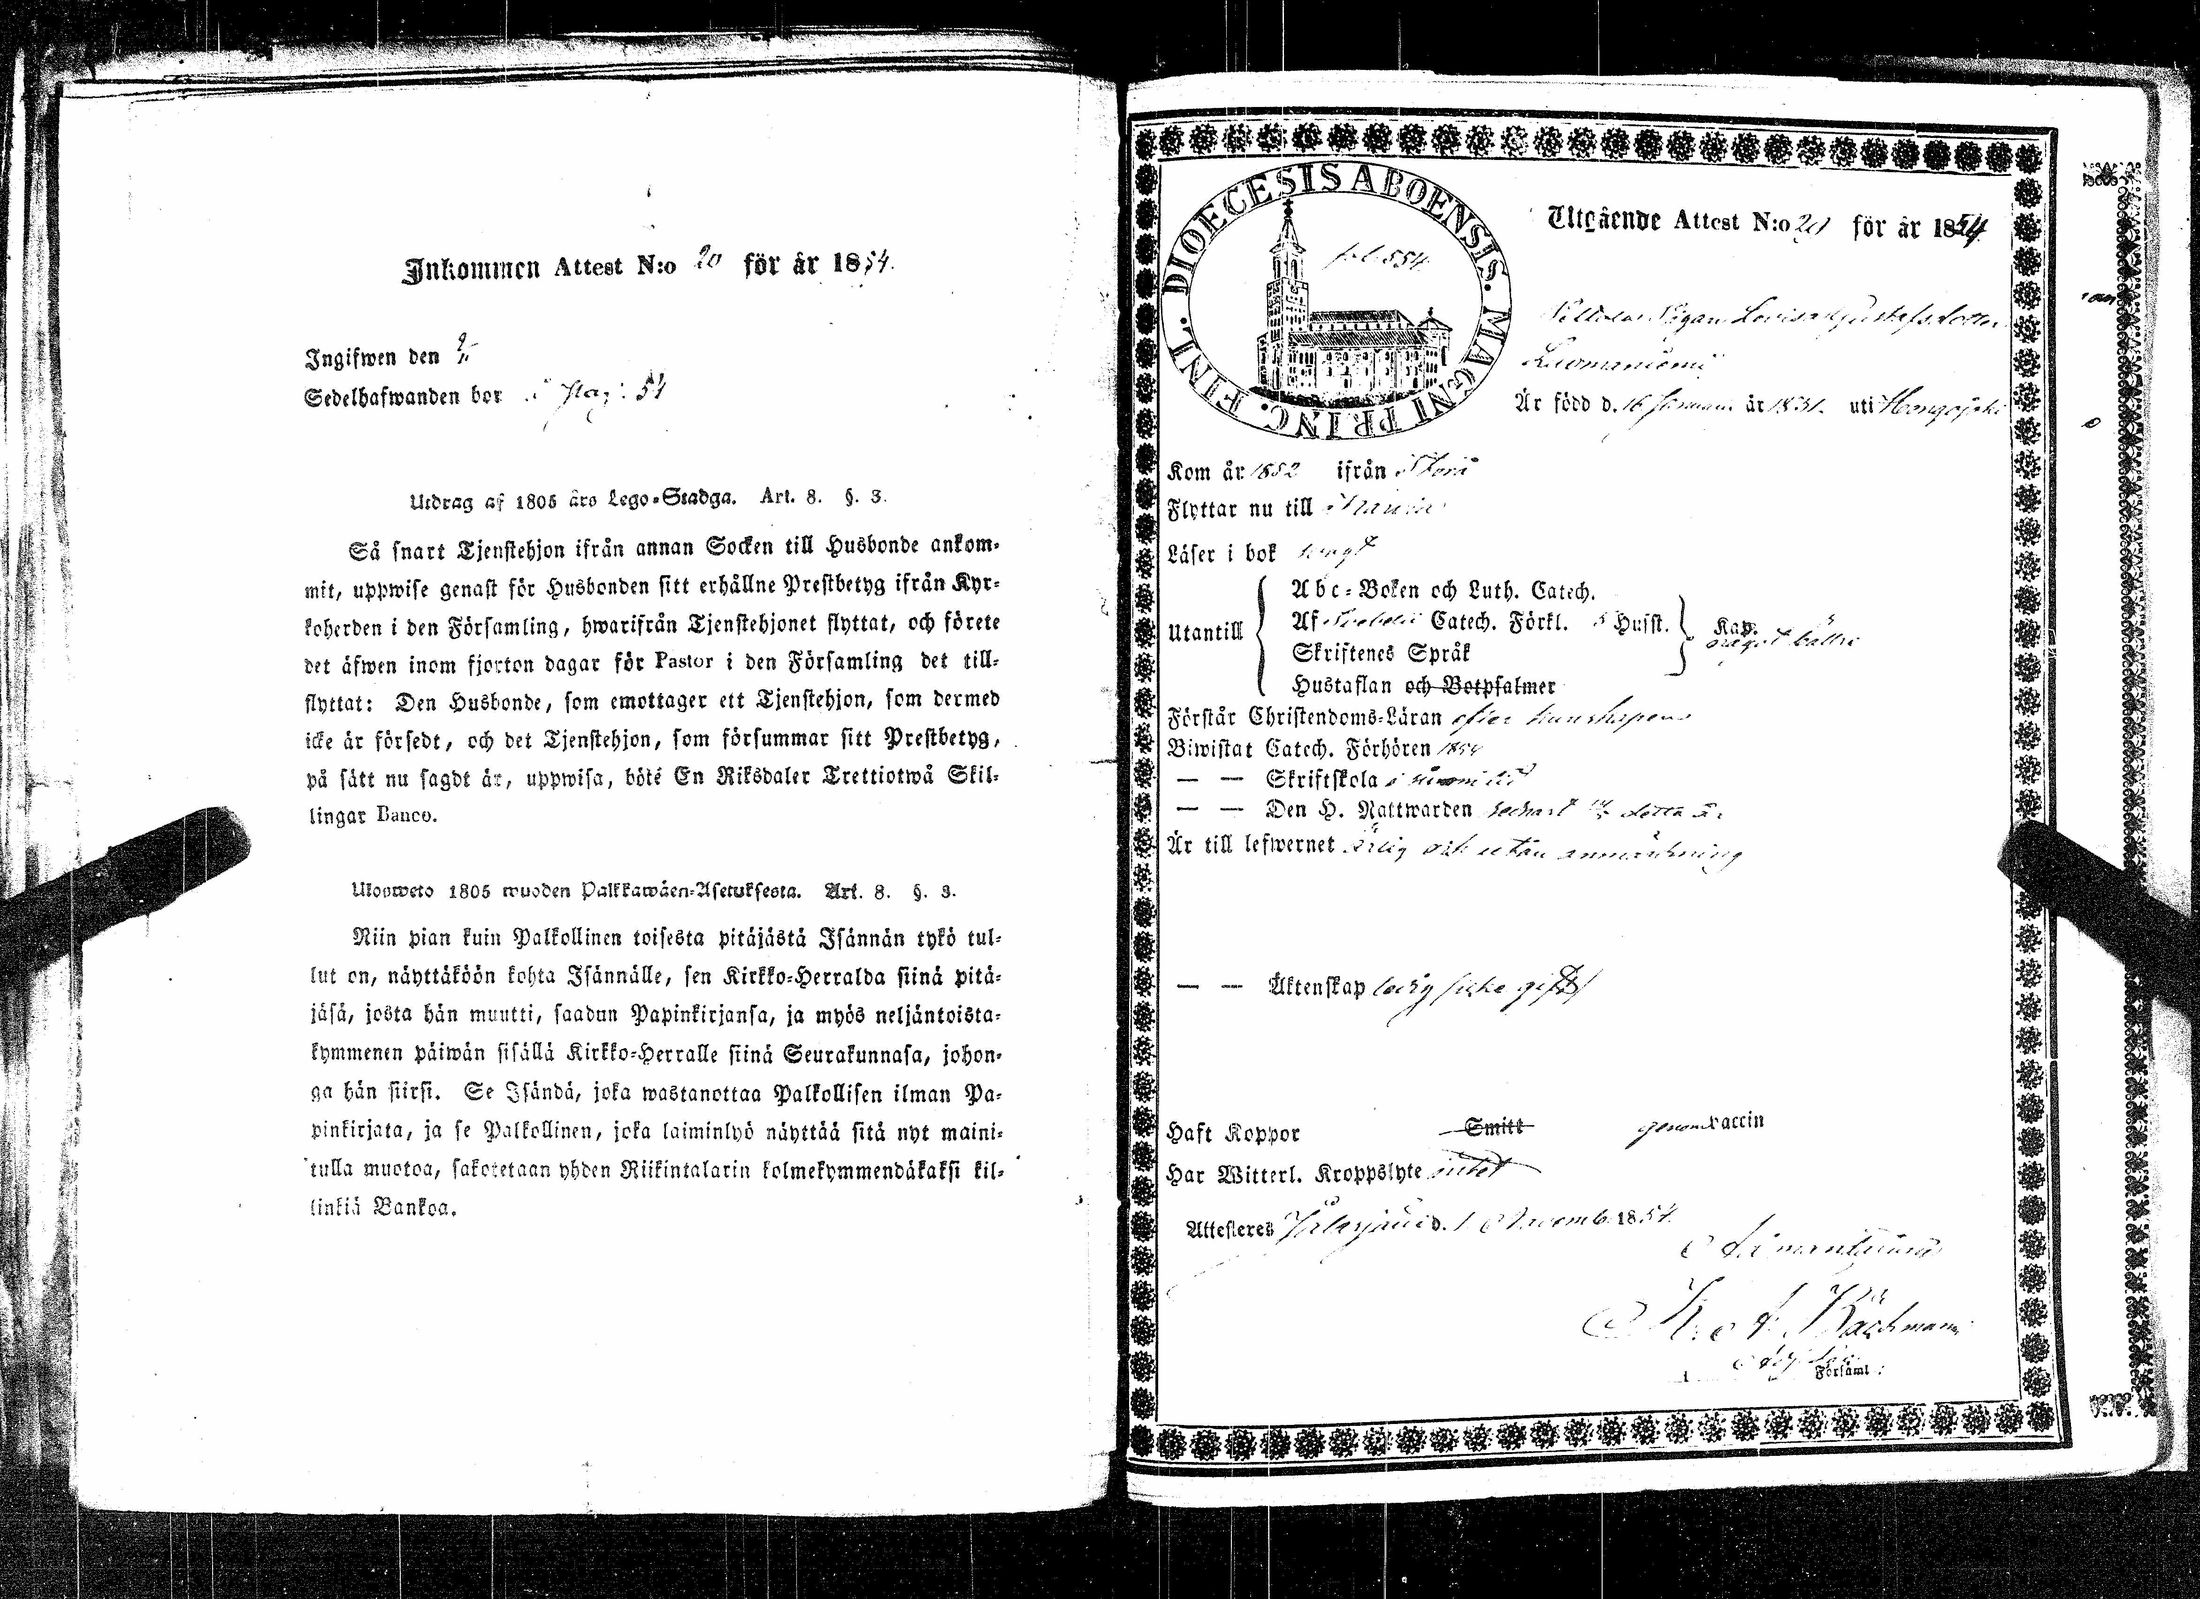 Inkommen Attest N:o 20 för år 1854.
Ingifwen den
Sedelhafwanden bor i pag: 54
Utdrag af 1805 års Lego-Stadga. Art. 8. §. 3.
Så snart Tjenstehjon ifrån annan Socken till Husbonde ankom-
mit, uppwise genast för Husbonden sitt erhållne Prestbetyg ifrån Kyr-
koherden i den Församling, hwarifrån Tjenstehjonet flyttat, och förete
det äfwen inom fjorton dagar för Pastor i den Församling det till-
flyttat: Den Husbonde, som emottager ett Tjenstehjon, som dermed
icke är försedt, och det Tjenstehjon, som försummar sitt Prestbetyg,
på sätt nu sagdt är, uppwisa, böte En Riksdaler Trettiotwå Skil-
lingar Banco.
Ulosweto 1805 wuoden Palkkawäen-Asetuksesta. Art. 8. §. 3.
Niin pian kuin Palkollinen toisesta pitäjästä Isännän tykö tul-
lut on, näyttäköön kohta Isännälle, sen Kirkko-Herralda siinä pitä-
jäsä, josta hän muutti, saadun Papinkirjansa, ja myös neljäntoista-
kymmenen päiwän sisällä Kirkko-Herralle siinä Seurakunnasa, johon-
ga hän siirsi. Se Isändä, joka wastanottaa Palkollisen ilman Pa-
pinkirjata, ja se Palkollinen, joka laiminlyö näyttää sitä nyt maini-
tulla muotoa, sakotetaan yhden Riikintalarin kolmekymmendäkaksi kil-
linkiä Bankoa.
DIOECESIS ABOENSIS. MAGNI PRINC. FINL.
fol. 554
Utgående Attest N:o 20 för år 1854
Pigan Lovisa Gustafsdotter
Luomaniemi
Är född d. 16 Januari år 1831. uti Hongojoki
Kom år 1852 ifrån Storå
Flyttar nu till
Läser i bok swagt
Utantill
Abc-Boken och Luth. Catech.
Af Swebelii Catech. Förkl. 5 Husst. Kap.
något bättre
Skriftenes Språk
Hustaflan och Botpsalmer
Förstår Christendoms-Läran efter kunskapen
Biwistat Catech. Förhören 1854
— — Skriftskola i sinom tid
— — Den H. Nattwarden senast detta år
Är till lefwernet ärlig och utan anmärkning
— — Äktenskap ledig (icke gift)
Haft Koppor Smitt genom Vaccin
Har Witterl. Kroppslyte intet
Attesteras Ilmajoki d. 1 Novemb. 1854.
Bäckman
Församl: